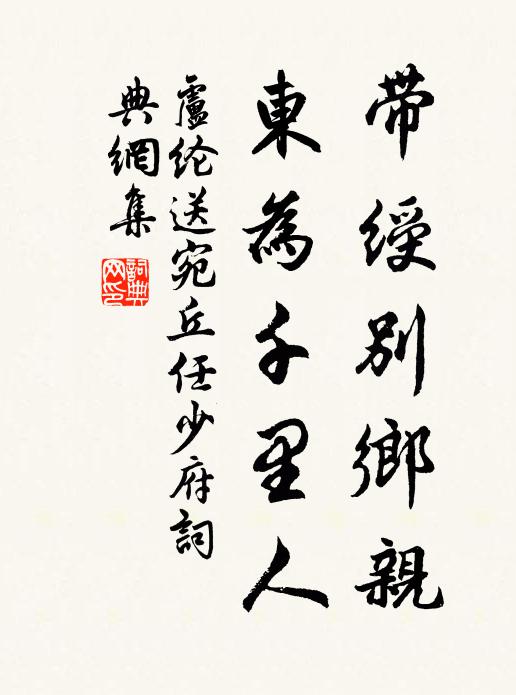 帶綬別鄉親
東為千里人
盧纶送宛丘任少府詞
典網集
詞典网印